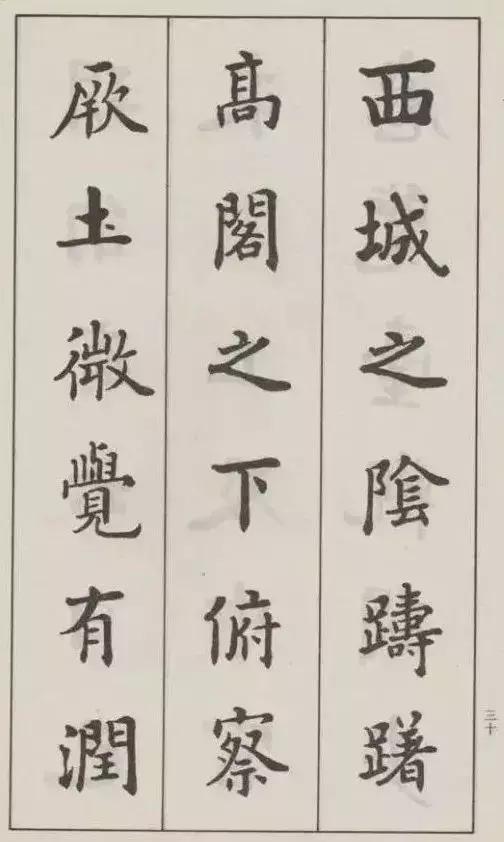 西城之陰躊躇
高閣之下俯察
厥土微覺有潤
三十